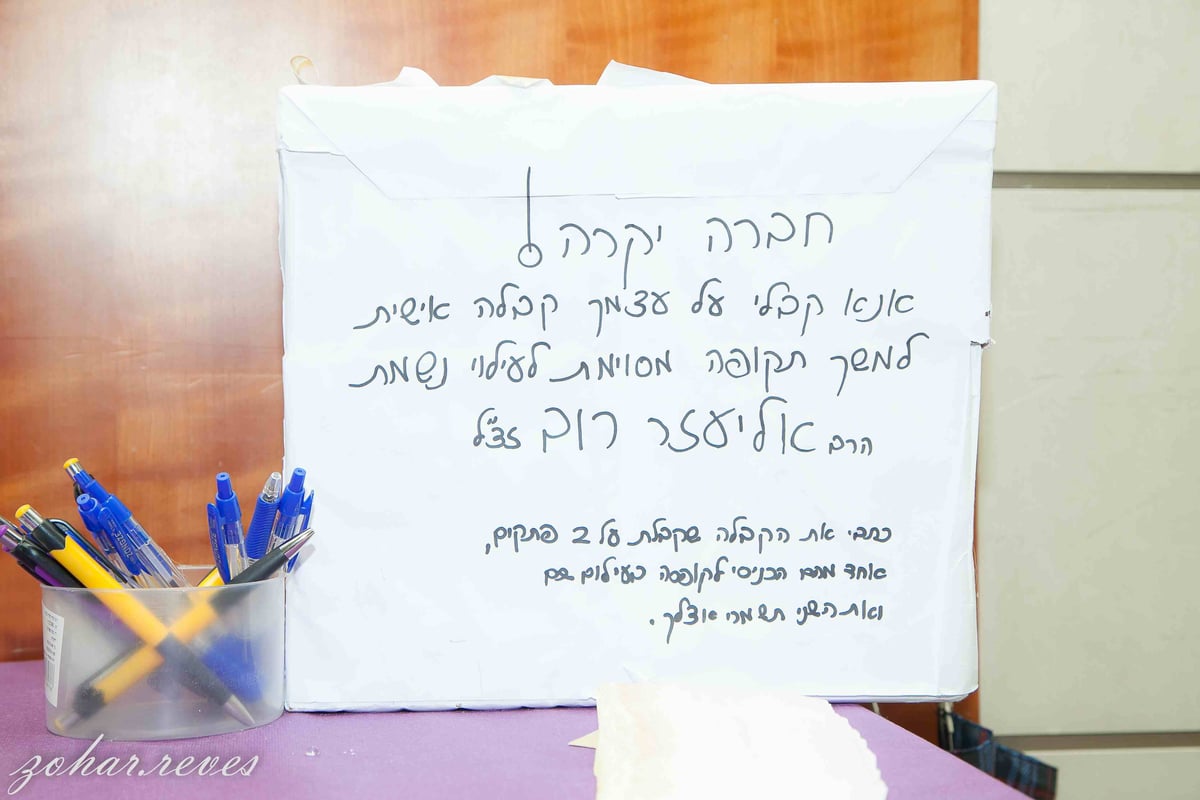 חברה יקרה!
אנא קבלי על עצמך קבלה אישית
למשך תקופה מסוימת לעילוי נשמת
הרב אליעזר רוב זצ"ל
כתבי את הקבלה שקבלת על 2 פתקים,
אחד מהם הכניסי לקופסה בעילום שם
ואת השני תשמרי אצלך.
zohar.reves